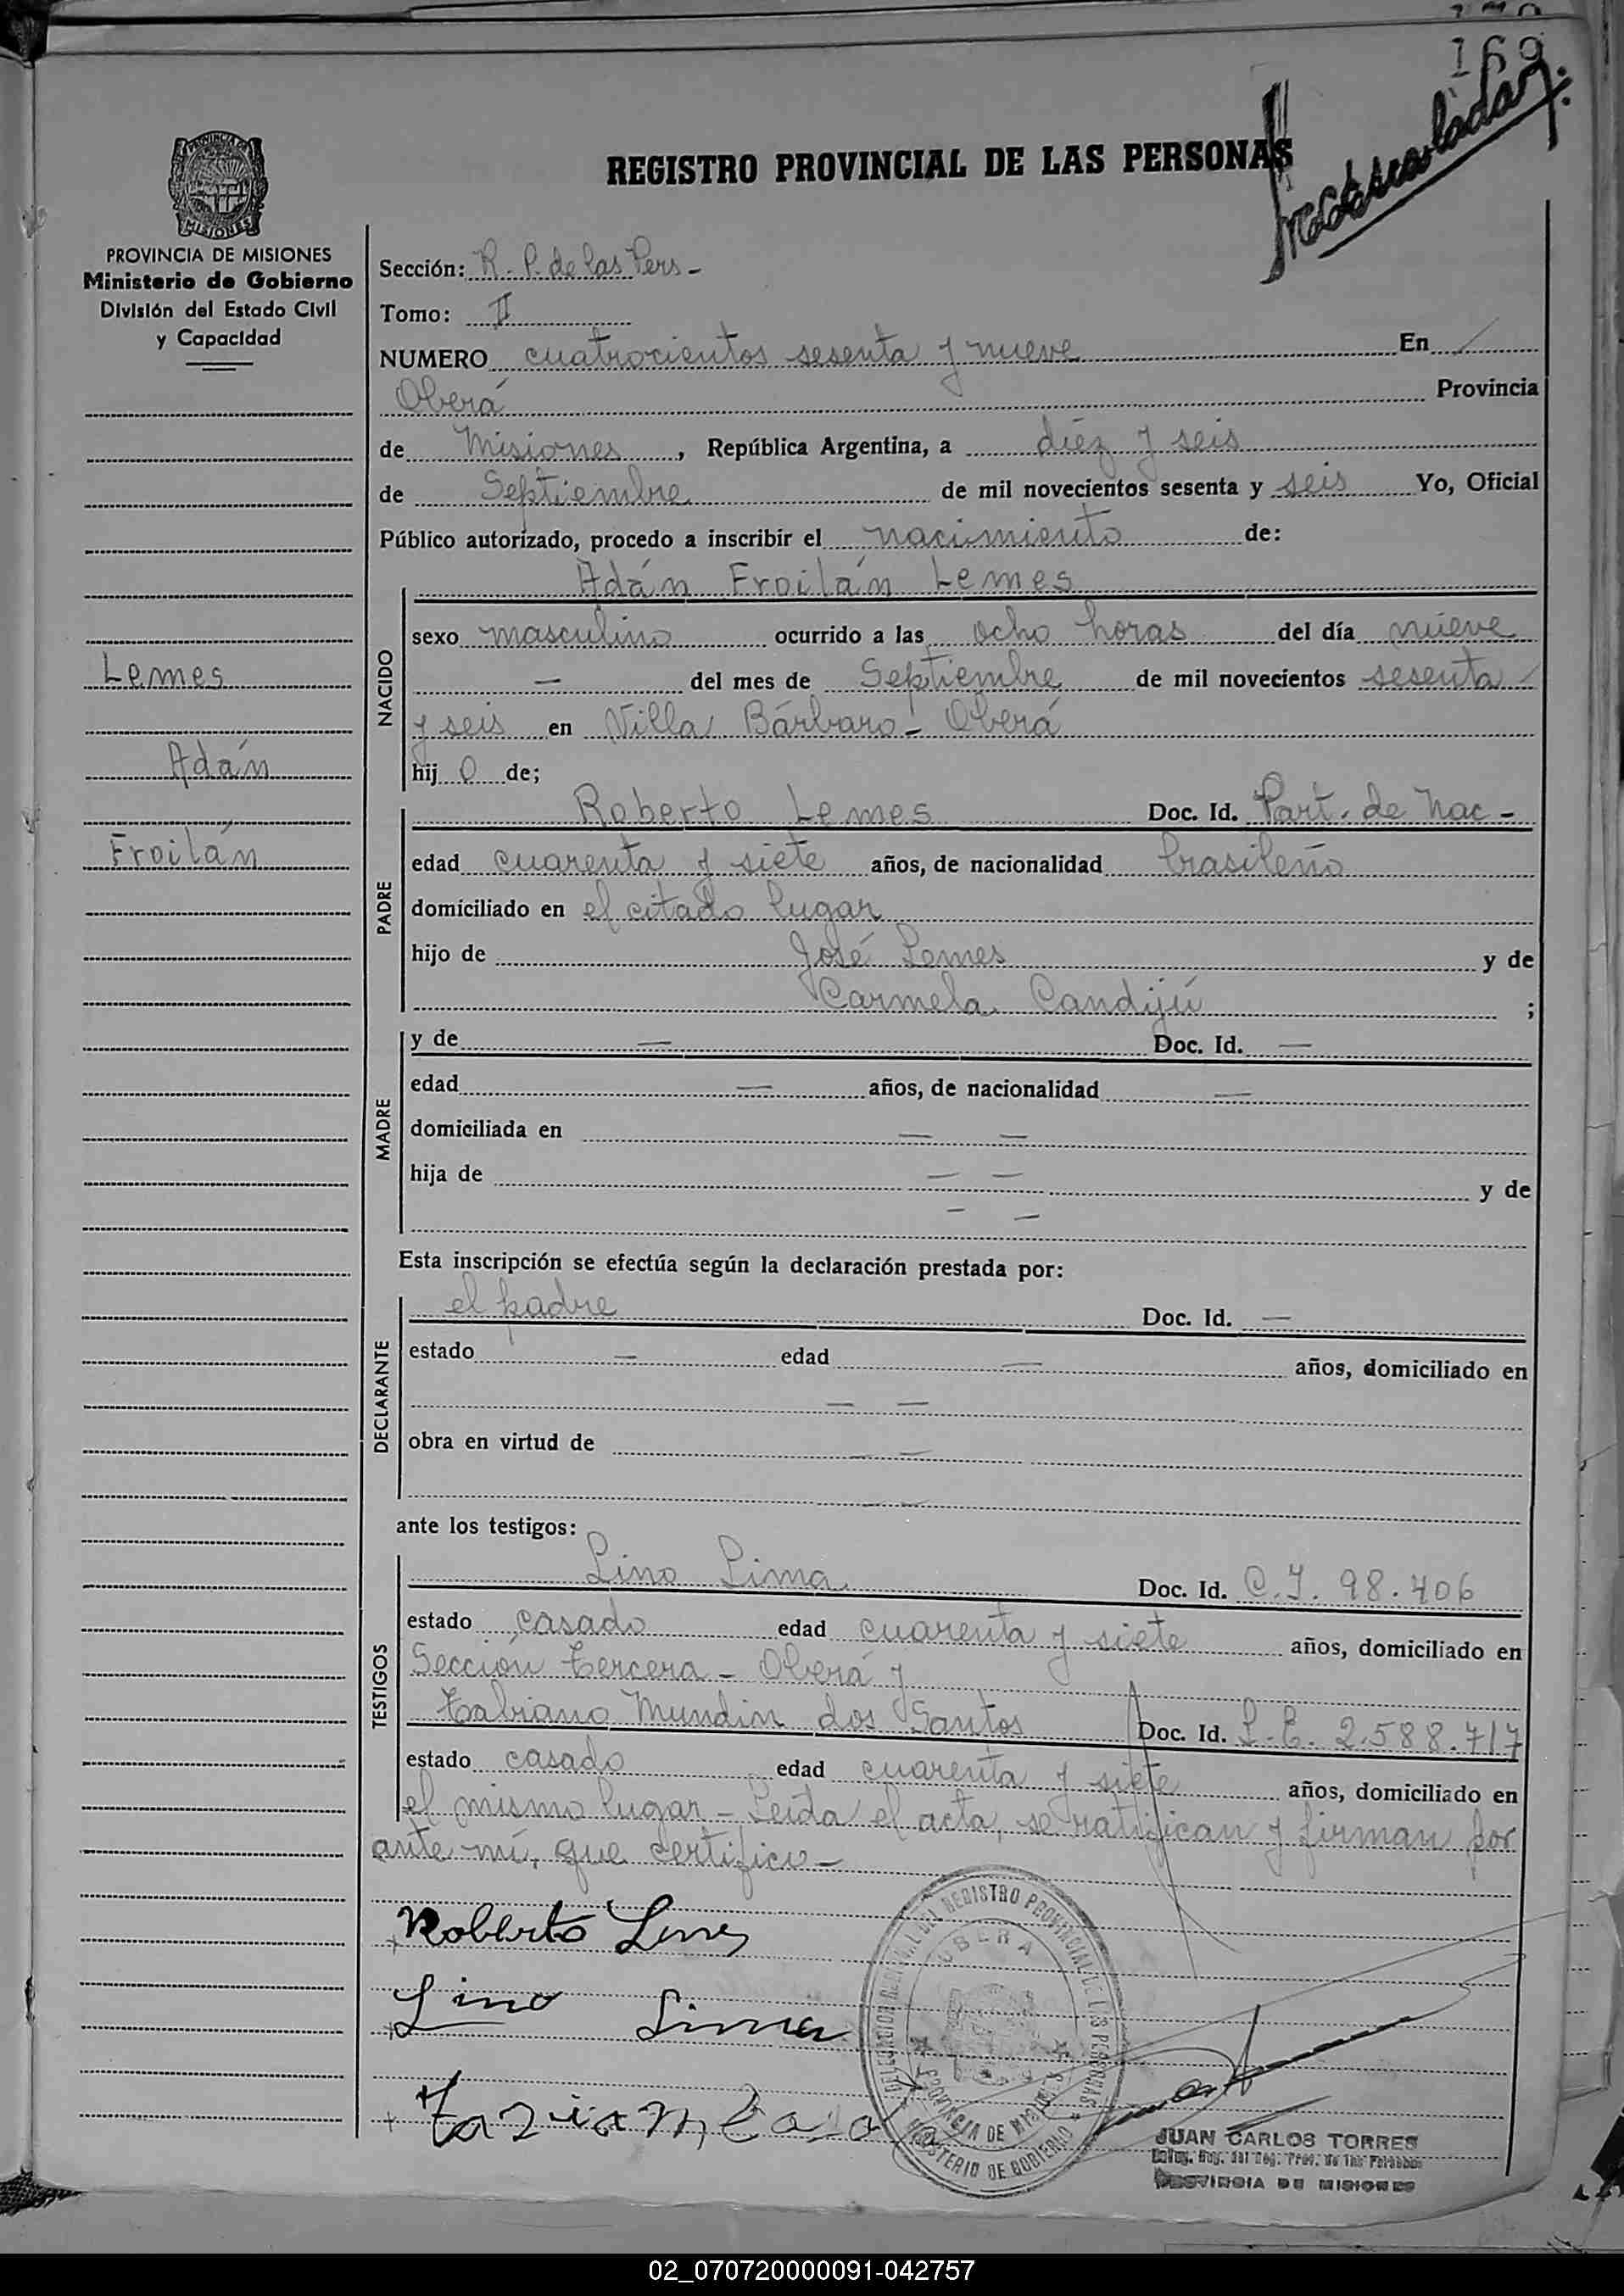 169
REGISTRO PROVINCIAL DE LAS PERSONAS
PROVINCIA DE
MISIONES
PROVINCIA DE MISIONES
Ministerio de Gobierno
División del Estado Civil
y Capacidad
Lemes
Adán
Froilán
Sección: R. P. de las Pers -
Tomo: II
NUMERO cuatrocientos sesenta y nueve En /
Oberá Provincia
de Misiones , República Argentina, a diéz y seis
de Septiembre de mil novecientos sesenta y seis Yo, Oficial
Público autorizado, procedo a inscribir el nacimiento de:
Adán Froilán Lemes
NACIDO
sexo masculino ocurrido a las ocho horas del día nueve
— del mes de Septiembre de mil novecientos sesenta /
y seis en Villa Bárbaro - Oberá
hij o de;
PADRE
Roberto Lemes Doc. Id. Part. de Nac -
edad cuarenta y siete años, de nacionalidad brasileño
domiciliado en el citado lugar
hijo de José Lemes y de
Carmela Candijú ;
MADRE
y de — Doc. Id. —
edad — años, de nacionalidad —
domiciliada en — —
hija de — — y de
— —
Esta inscripción se efectúa según la declaración prestada por:
DECLARANTE
el padre Doc. Id. —
estado — edad — años, domiciliado en
— —
obra en virtud de — —
— —
ante los testigos:
TESTIGOS
Lino Lima Doc. Id. C.I. 98.406
estado casado edad cuarenta y siete años, domiciliado en
Sección tercera - Oberá y
Fabiano Mundin dos Santos Doc. Id. L.E. 2.588.717
estado casado edad cuarenta y siete años, domiciliado en
el mismo lugar - Leída el acta, se ratifican y firman por
ante mí, que certifico -
Roberto Lemes
Lino Lima
DEL REGISTRO PROVINCIAL DE LAS PERSONAS
OBERA
PROVINCIA DE MISIONES
MINISTERIO DE GOBIERNO
JUAN CARLOS TORRES
PROVINCIA DE MISIONES
02_070720000091-042757